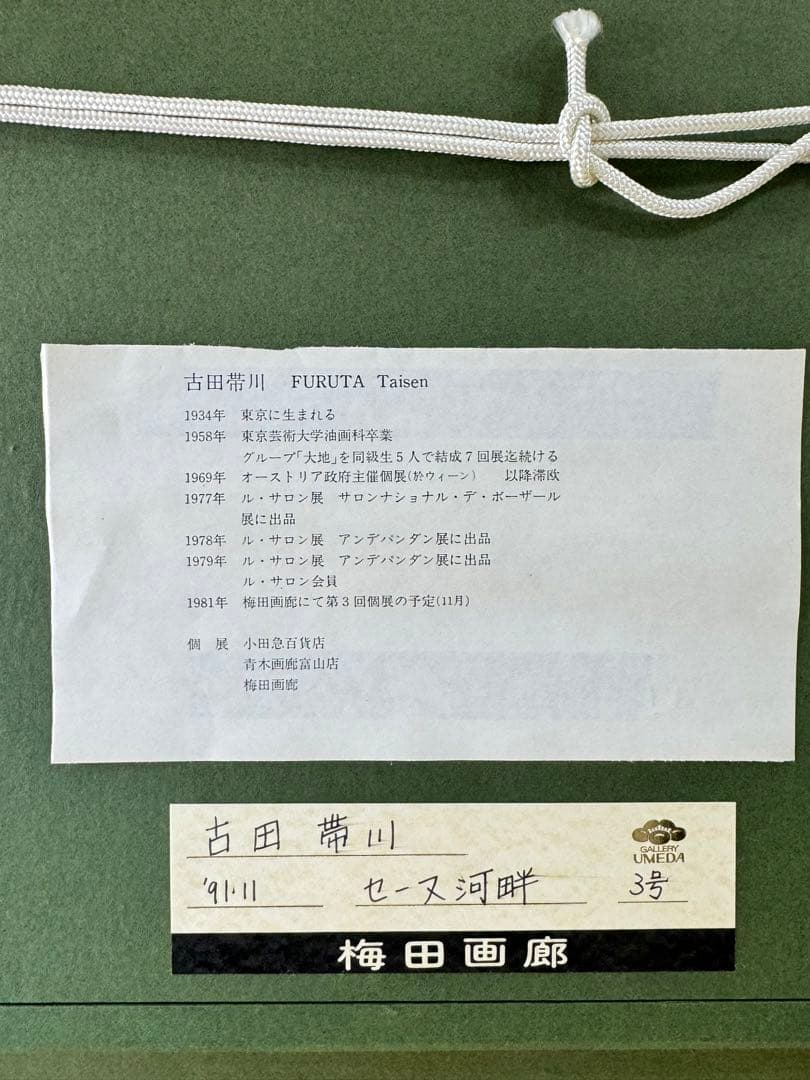 古田帯川 FURUTA Taisen
1934年 東京に生まれる
1958年 東京芸術大学油画科卒業
グループ「大地」を同級生5人で結成7回展迄続ける
1969年 オーストリア政府主催個展(於ウィーン) 以降滞欧
1977年 ル・サロン展 サロンナショナル・デ・ボーザール
展に出品
1978年 ル・サロン展 アンデパンダン展に出品
1979年 ル・サロン展 アンデパンダン展に出品
ル・サロン会員
1981年 梅田画廊にて第3回個展の予定(11月)
個 展 小田急百貨店
青木画廊富山店
梅田画廊
古田 帯川
GALLERY
UMEDA
'91.11 セーヌ河畔 3号
梅田画廊